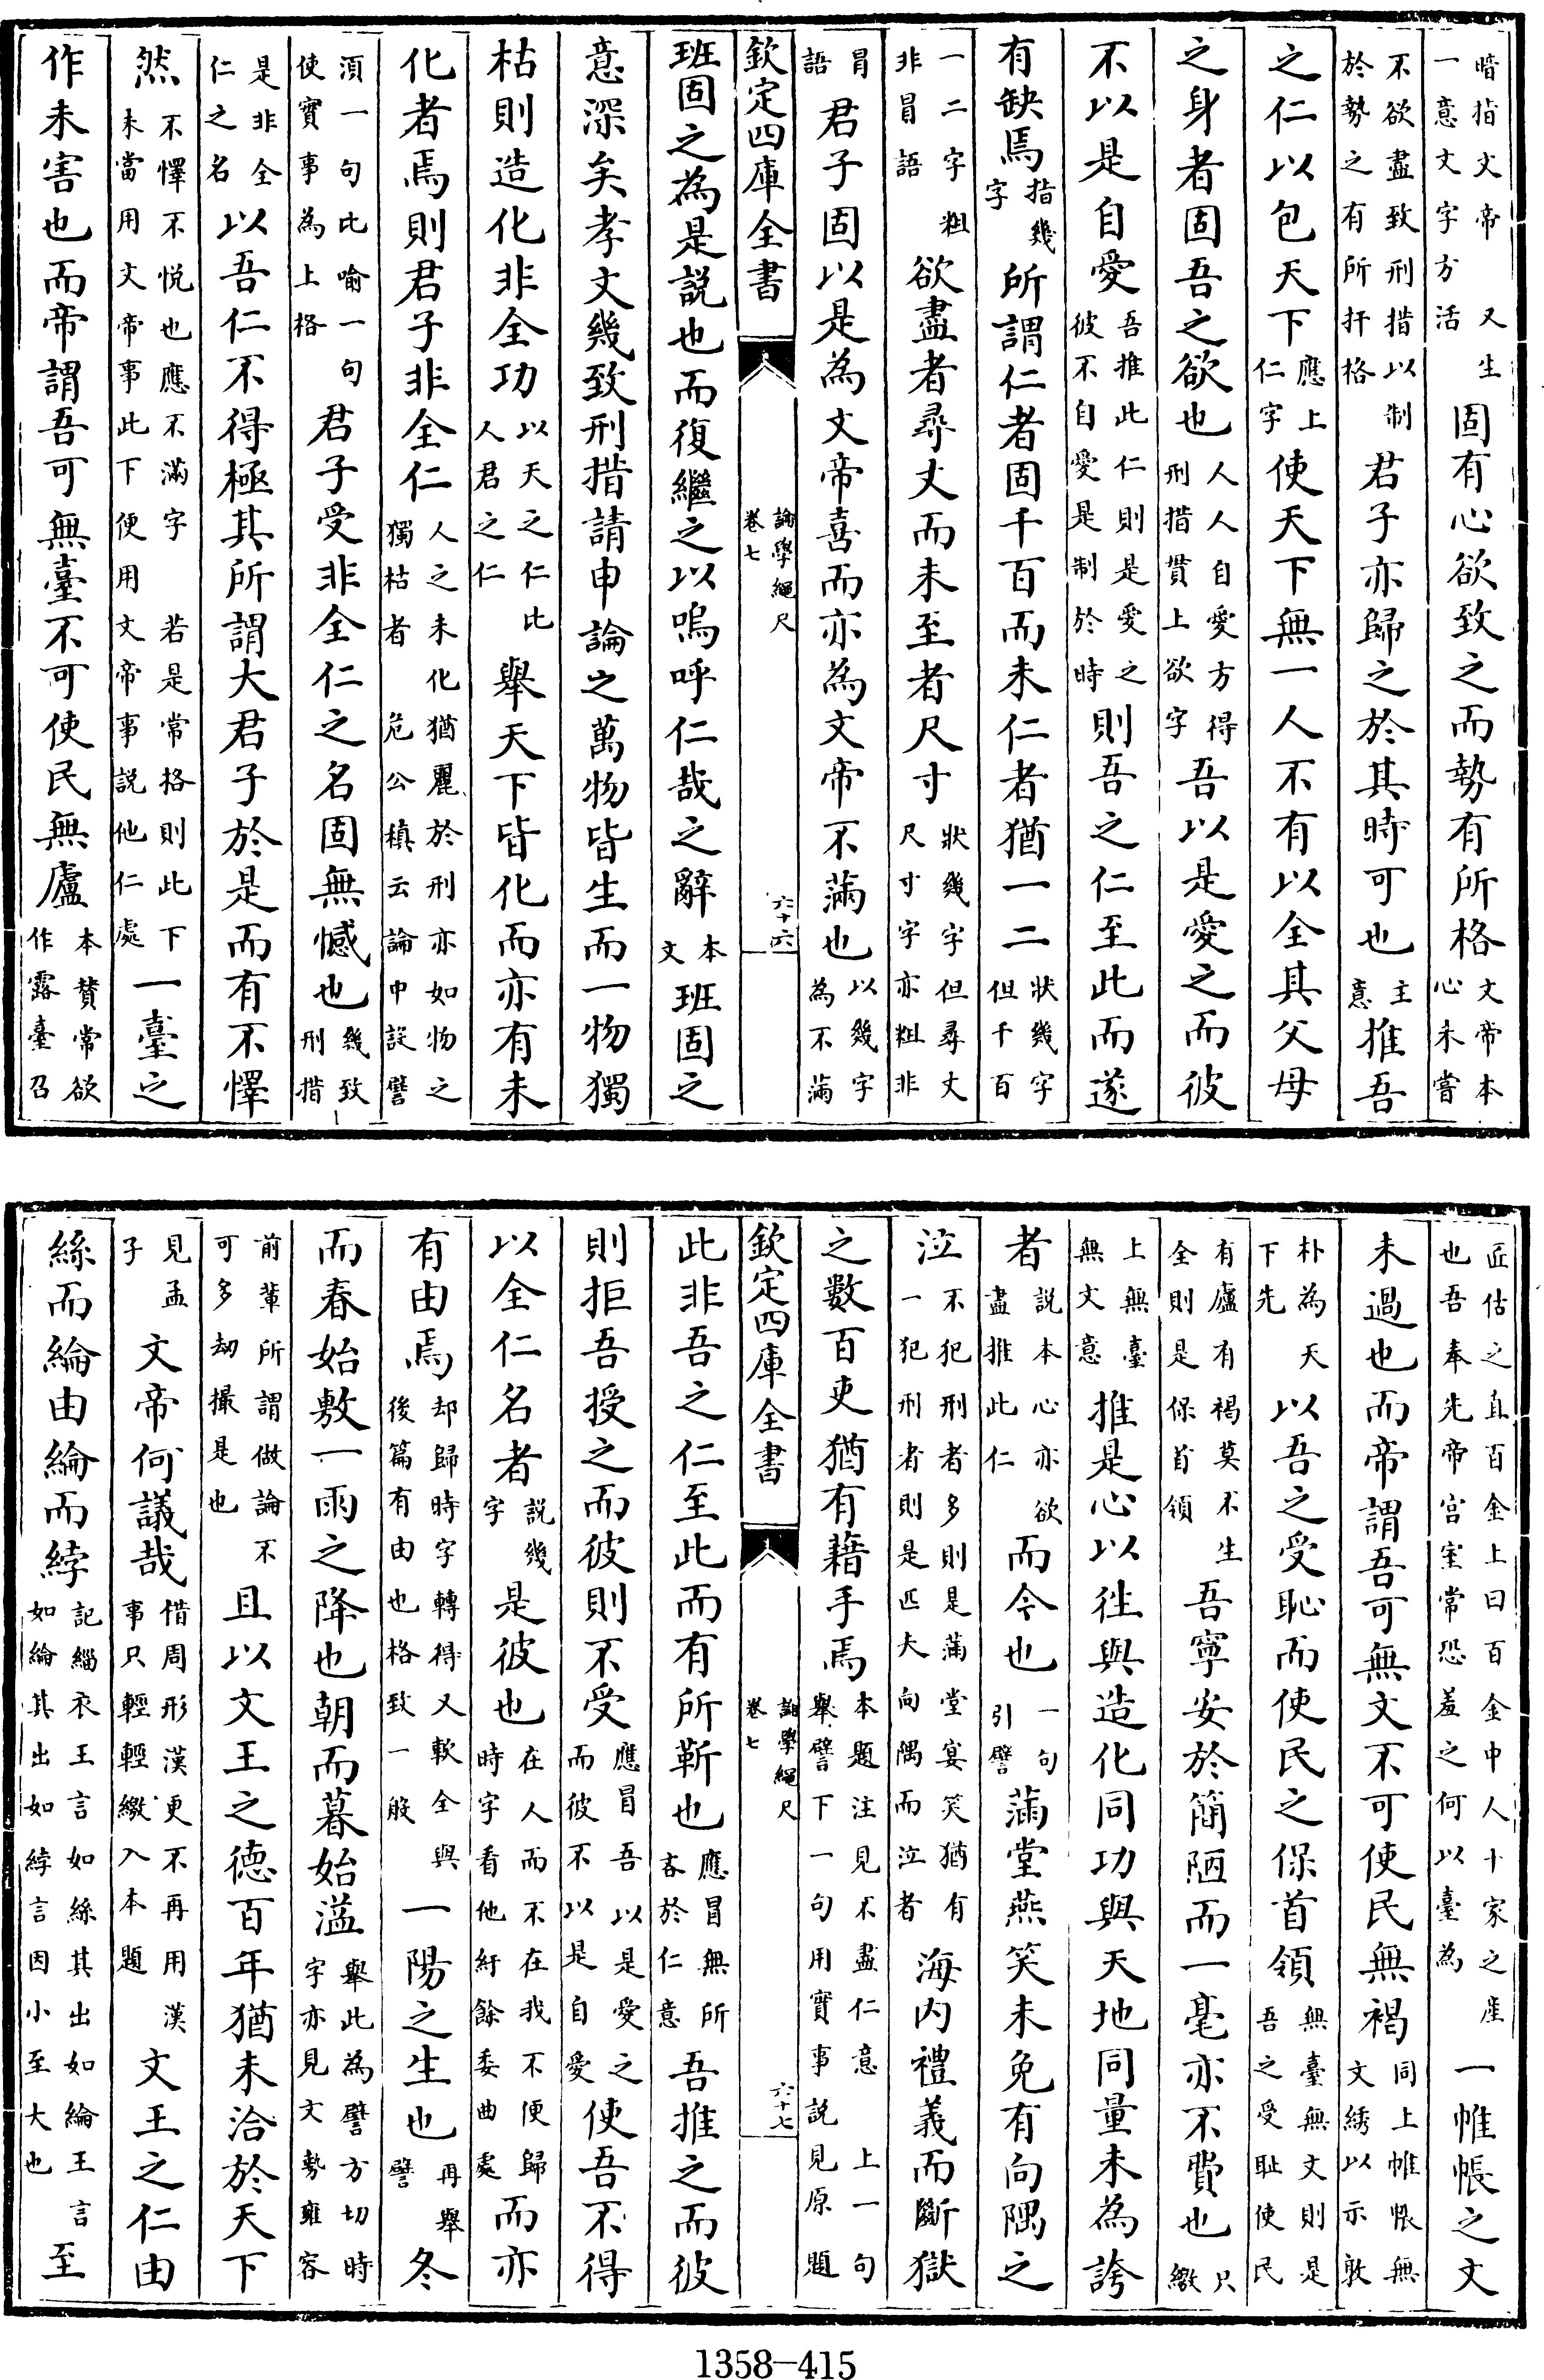 暗指文帝又生一意文字方活固有心欲致之而勢有所格文帝本心未嘗
不欲盡致刑措以制於勢之有所扞格君子亦歸之於其時可也主意推吾
之仁以包天下應上仁字使天下無一人不有以全其父母
之身者固吾之欲也人人自愛方得刑措貫上欲字吾以是愛之而彼
不以是自愛吾推此仁則是愛之彼不自愛是制於時則吾之仁至此而遂
有缺焉指幾字所謂仁者固千百而未仁者猶一二狀幾字但千百
一二字粗非冒語欲盡者尋丈而未至者尺寸狀幾字但尋丈尺寸字亦粗非
冒語君子固以是為文帝喜而亦為文帝不滿也以幾字為不滿
欽定四庫全書 論學繩尺 卷七 六十六
班固之為是説也而復繼之以嗚呼仁哉之辭本文班固之
意深矣孝文幾致刑措請申論之萬物皆生而一物獨
枯則造化非全功以天之仁比人君之仁舉天下皆化而亦有未
化者焉則君子非全仁人之未化猶麗於刑亦如物之獨枯者危公稹云論中設譬
須一句比喻一句使實事為上格君子受非全仁之名固無憾也幾致刑措
是非全仁之名以吾仁不得極其所謂大君子於是而有不懌
然不懌不悅也應不滿字若是常格則此下未當用文帝事此下便用文帝事説他仁處一臺之
作未害也而帝謂吾可無臺不可使民無廬本贊常欲作露臺召
匠估之直百金上曰百金中人十家之産也吾奉先帝宫室常恐羞之何以臺為一帷帳之文
未過也而帝謂吾可無文不可使民無褐同上帷帳無文綉以示敦
朴為天下先以吾之受恥而使民之保首領無臺無文則是吾之受耻使民
有廬有褐莫不生全則是保首領吾寧安於簡陋而一毫亦不費也只繳
上無臺無文意推是心以徃與造化同功與天地同量未為誇
者說本心亦欲盡推此仁而今也一句引譬滿堂燕笑未免有向隅之
泣不犯刑者多則是滿堂宴笑猶有一犯刑者則是匹夫向隅而泣者海内禮義而斷獄
之數百吏猶有藉手焉本題注見不盡仁意上一句舉譬下一句用實事説見原題
欽定四庫全書 論學繩尺 卷七 六十七
此非吾之仁至此而有所靳也應冒無所吝於仁意吾推之而彼
則拒吾授之而彼則不受應冒吾以是愛之而彼不以是自愛使吾不得
以全仁名者説幾字是彼也在人而不在我不便歸時字看他紆餘委曲處而亦
有由焉却歸時字轉得又軟全與後篇有由也格致一般一陽之生也再舉譬冬
而春始敷一雨之降也朝而暮始溢舉此為譬方切時字亦見文勢雍容
前輩所謂做論不可多刼撮是也且以文王之德百年猶未洽於天下
見孟子文帝何議哉借周形漢更不再用漢事只輕輕繳入本題文王之仁由
絲而綸由綸而綍記緇衣王言如絲其出如綸王言如綸其出如綍言因小至大也至
1358-415